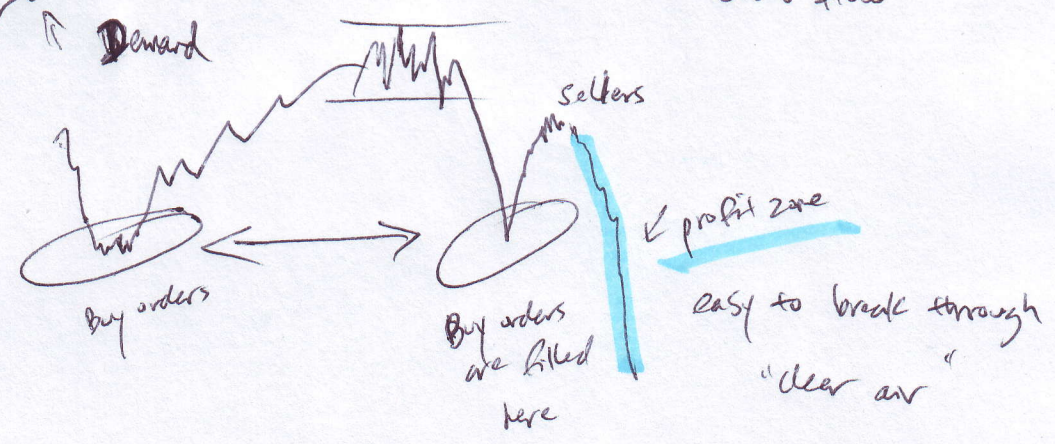 Demand
sellers
profit zone
Buy orders
Buy orders
are filled
here
easy to break through
"clear air"